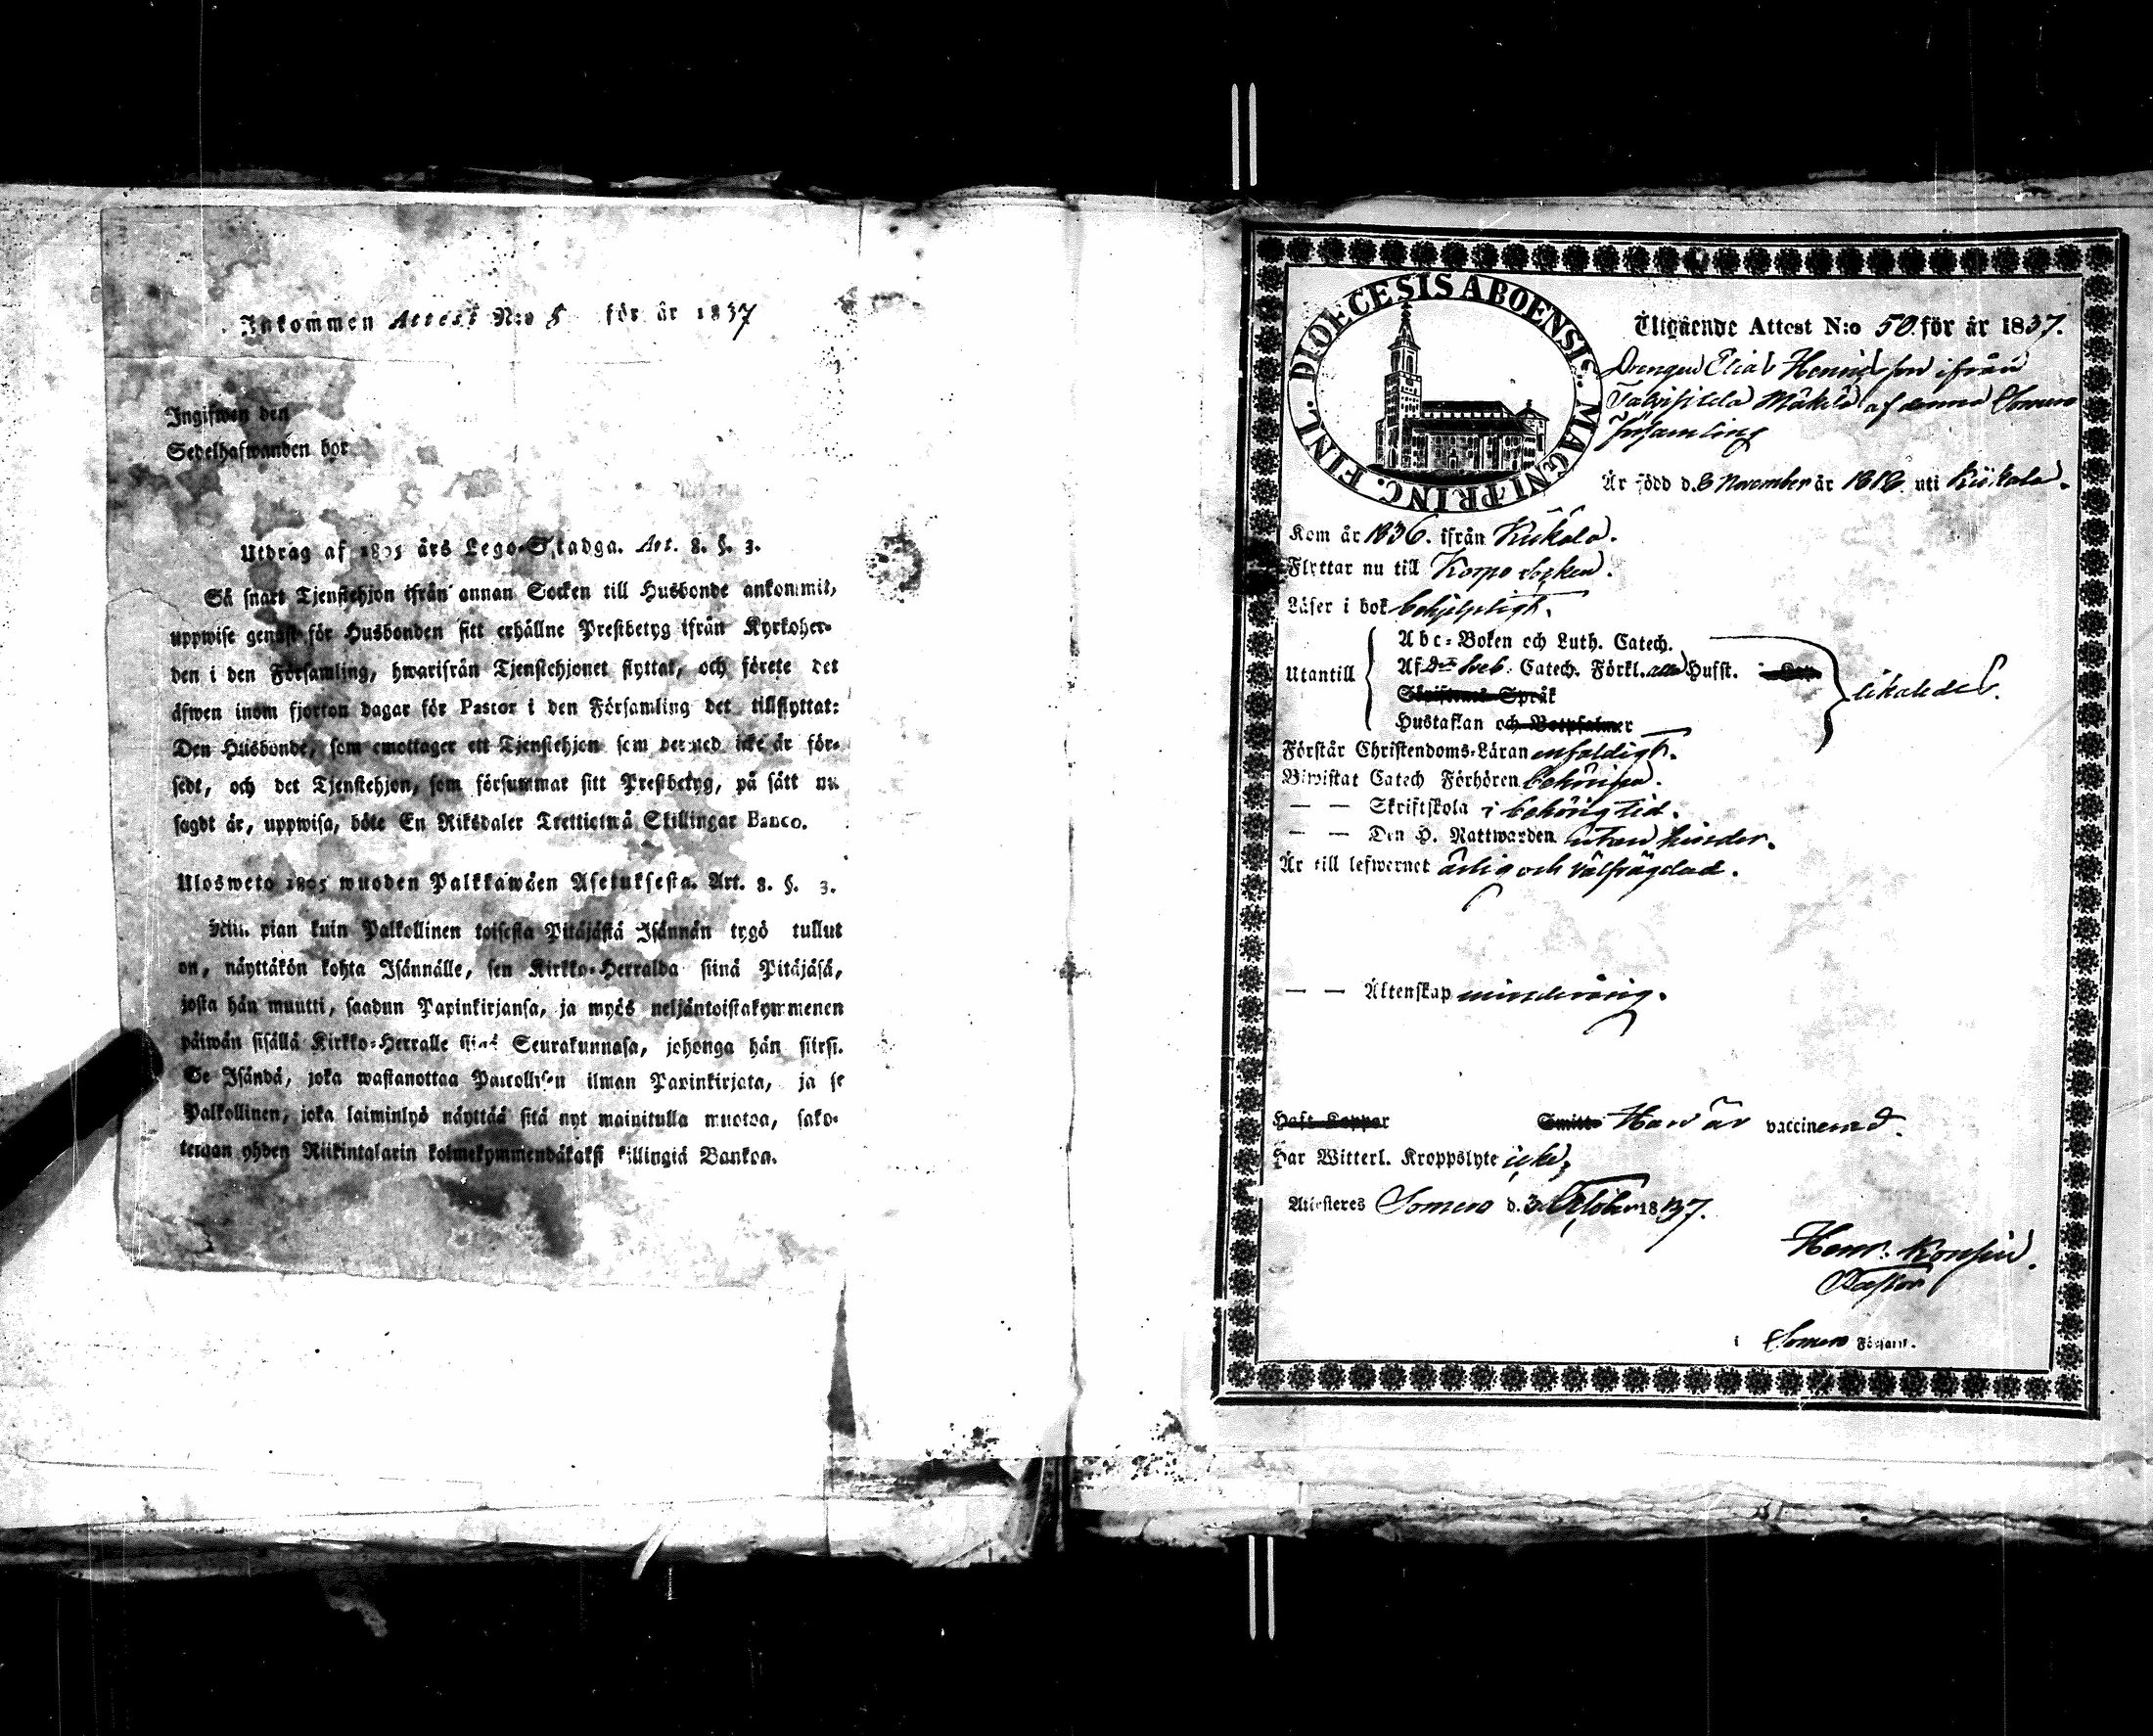 Inkommen Attest N:o 8 för år 1837
Ingifwen den
Sedelhafwanden bor
Utdrag af 1805 års Lego-Stadga. Art. 8. §. 3.
Så snart Tjenstehjon ifrån annan Socken till Husbonde ankommit,
uppwise genast för Husbonden sitt erhållne Prestbetyg ifrån Kyrkoher-
den i den Församling, hwarifrån Tjenstehjonet flyttat, och förete det
äfwen inom fjorton dagar för Pastor i den Församling det tillflyttat:
Den Husbonde, som emottager ett Tjenstehjon som dermed icke är för-
sedt, och det Tjenstehjon, som försummar sitt Prestbetyg, på sätt nu
sagdt är, uppwisa, böte En Riksdaler Trettiotwå Skillingar Banco.
Ulosweto 1805 wuoden Palkkawäen Asetuksesta. Art. 8. §. 3.
pian kuin Palkollinen toisesta Pitäjästä Isännän tygö tullut
on, näyttäkön kohta Isännälle, sen Kirkko-Herralda siinä Pitäjäsä,
josta hän muutti, saadun Papinkirjansa, ja myös neljäntoistakymmenen
päiwän sisällä Kirkko-Herralle siinä Seurakunnasa, johonga hän siirsi.
Se Isändä, joka wastanottaa Palcollisen ilman Papinkirjata, ja se
Palkollinen, joka laiminlyö näyttää sitä nyt mainitulla muotoa, sako-
tetaan yhden Riikintalarin kolmekymmendäkaksi killingiä Bankoa.
DIOECESIS ABOENSIS. MAGNI PRINC. FINL.
Utgående Attest N:o 50. för år 1837.
Drengen Elias Henricsson ifrån
Talvisilda Mäkilä af denna Somero
församling
Är född d. 8 November år 1818. uti Kiikala.
Kom år 1836. ifrån Kiikala.
Flyttar nu till Korpo socken.
Läser i bok behjelpligt.
Utantill
Abc-Boken och Luth. Catech.
Af D:r Sveb. Catech. Förkl. alla Hufst.
Skriftens Språk
Hustaflan och Botpsalmer
likaledes.
Förstår Christendoms-Läran enfaldigt.
Biwistat Catech Förhören behörigen.
— — Skriftskola i behörig tid.
— — Den H. Nattwarden utan hinder.
Är till lefwernet ärlig och välfrägdad.
— — Äktenskap minderårig.
Haft Koppor Smitto Han är vaccinerad.
Har Witterl. Kroppslyte icke,
Attesteres Somero d. 3 October 1837.
Henr. Konsin.
Pastor
i Somero Församl.